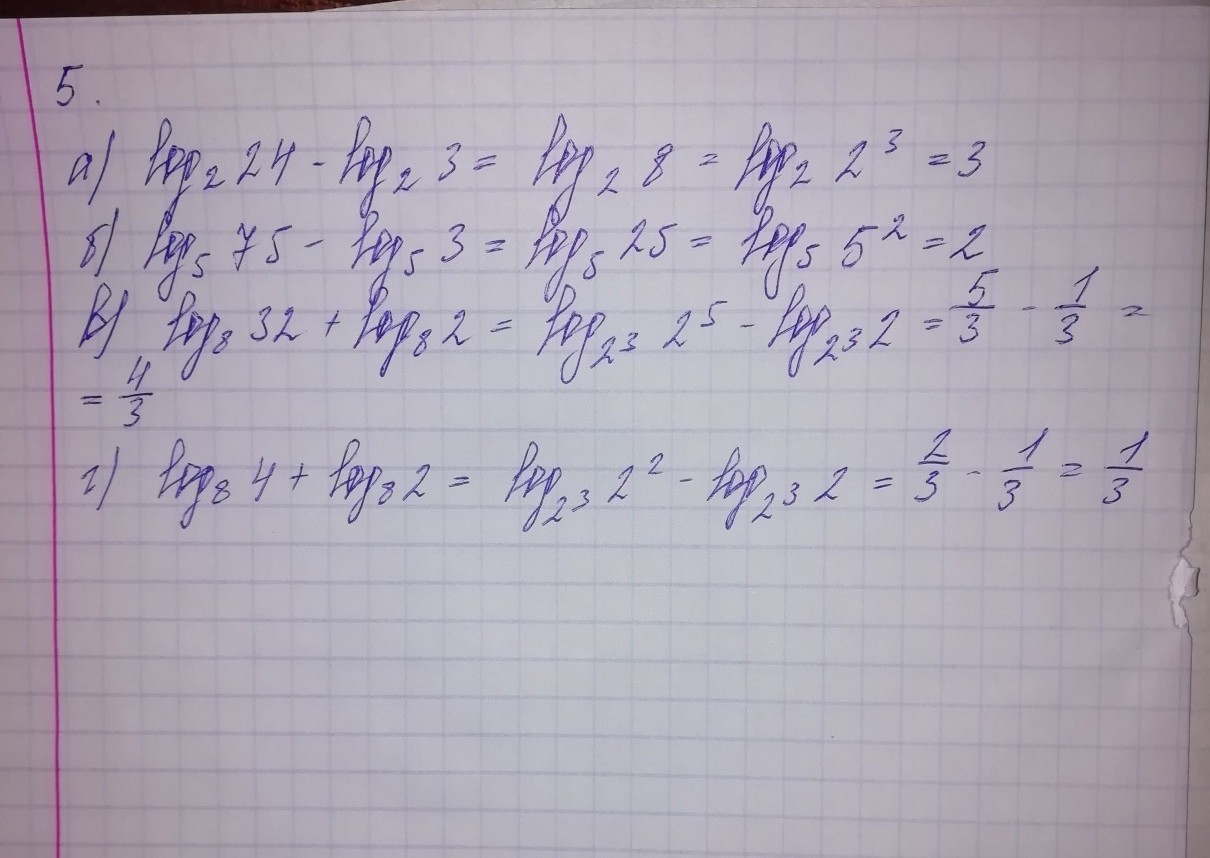 5.
а) log₂ 24 - log₂ 3 = log₂ 8 = log₂ 2³ = 3
б) log₅ 75 - log₅ 3 = log₅ 25 = log₅ 5² = 2
в) log₈ 32 + log₈ 2 = log₂³ 2⁵ - log₂³ 2 = 5/3 - 1/3 =
= 4/3
г) log₈ 4 + log₈ 2 = log₂³ 2² - log₂³ 2 = 2/3 - 1/3 = 1/3